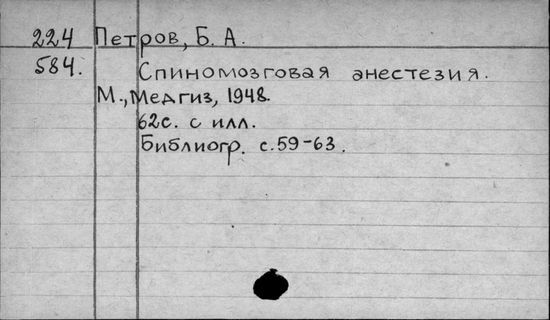 224 Петров, Б. А.
584. Спиномозговая анестезия.
М., Медгиз, 1948.
62с. с илл.
Библиогр. с.59-63.